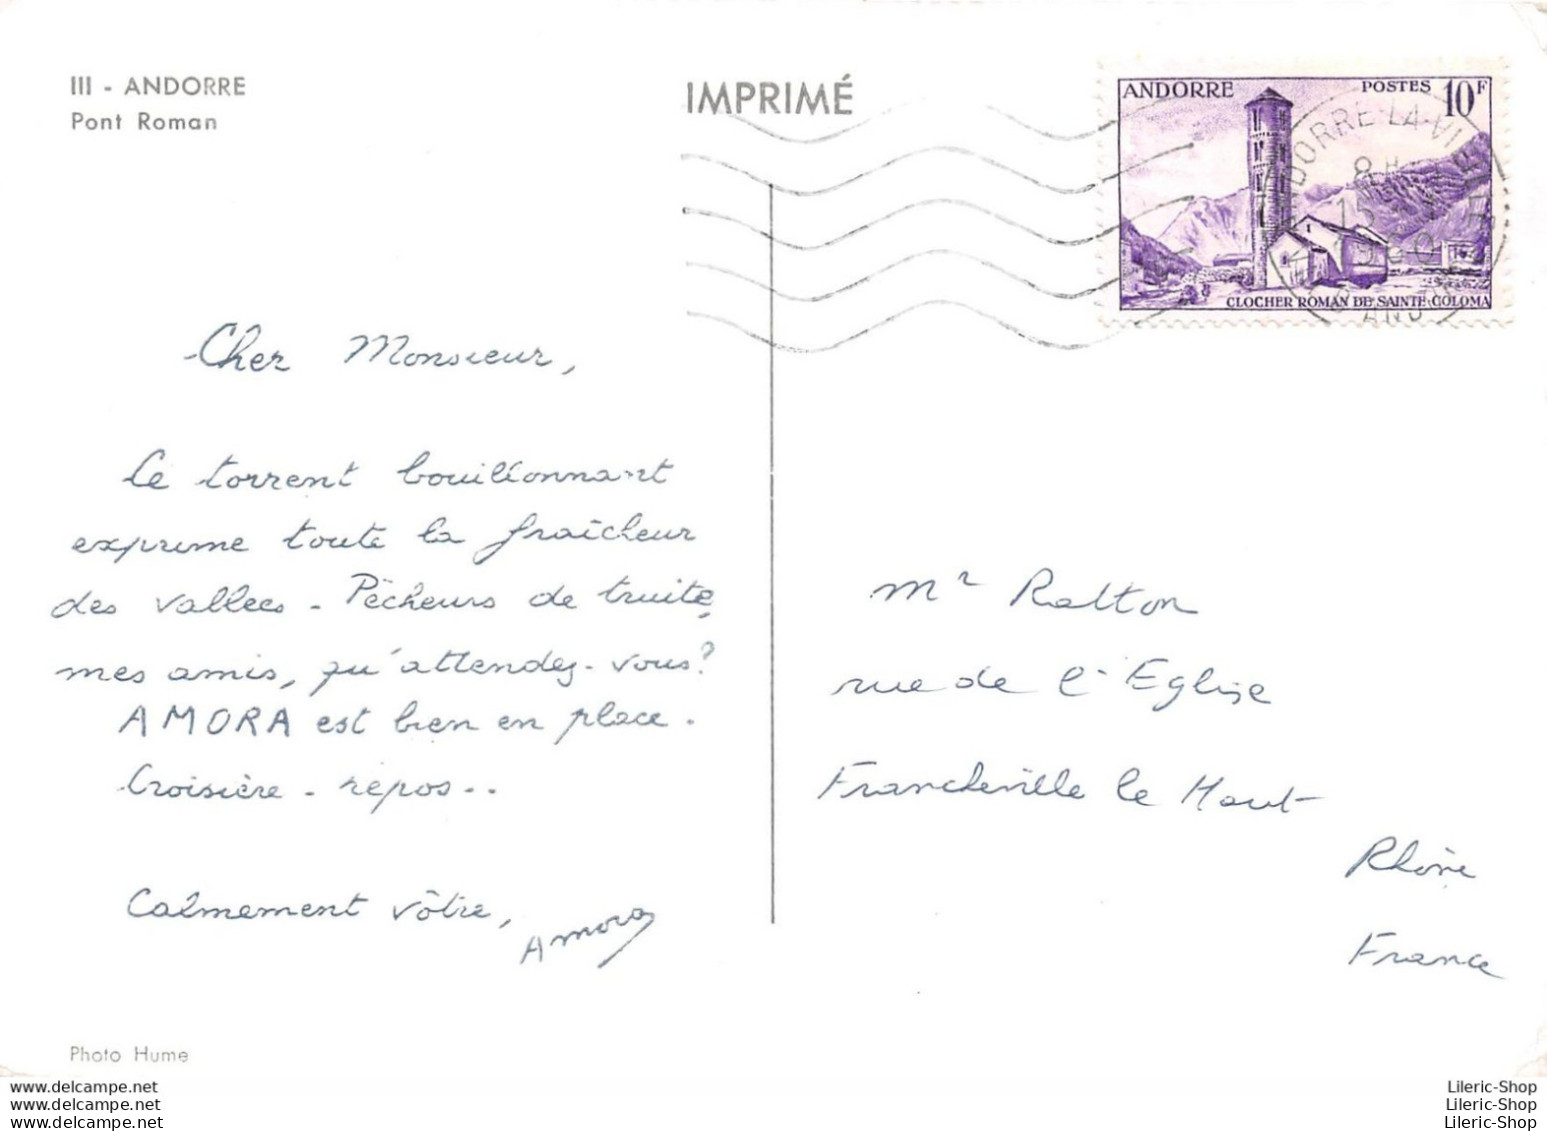 III - ANDORRE
Pont Roman
IMPRIMÉ
ANDORRE POSTES 10F
CLOCHER ROMAN DE SAINTE COLOMA
ANDORRE-LA-VIEILLE
Cher Monsieur,
Le torrent bouillonnant
exprime toute la fraîcheur
des vallées - Pêcheurs de truite,
mes amis, qu'attendez-vous?
AMORA est bien en place.
Croisière - repos..
Calmement vôtre,
Amora
Mr Ratton
rue de l'Eglise
Francheville le Haut
Rhône
France
Photo Hume
www.delcampe.net
www.delcampe.net
www.delcampe.net
Lileric-Shop
Lileric-Shop
Lileric-Shop